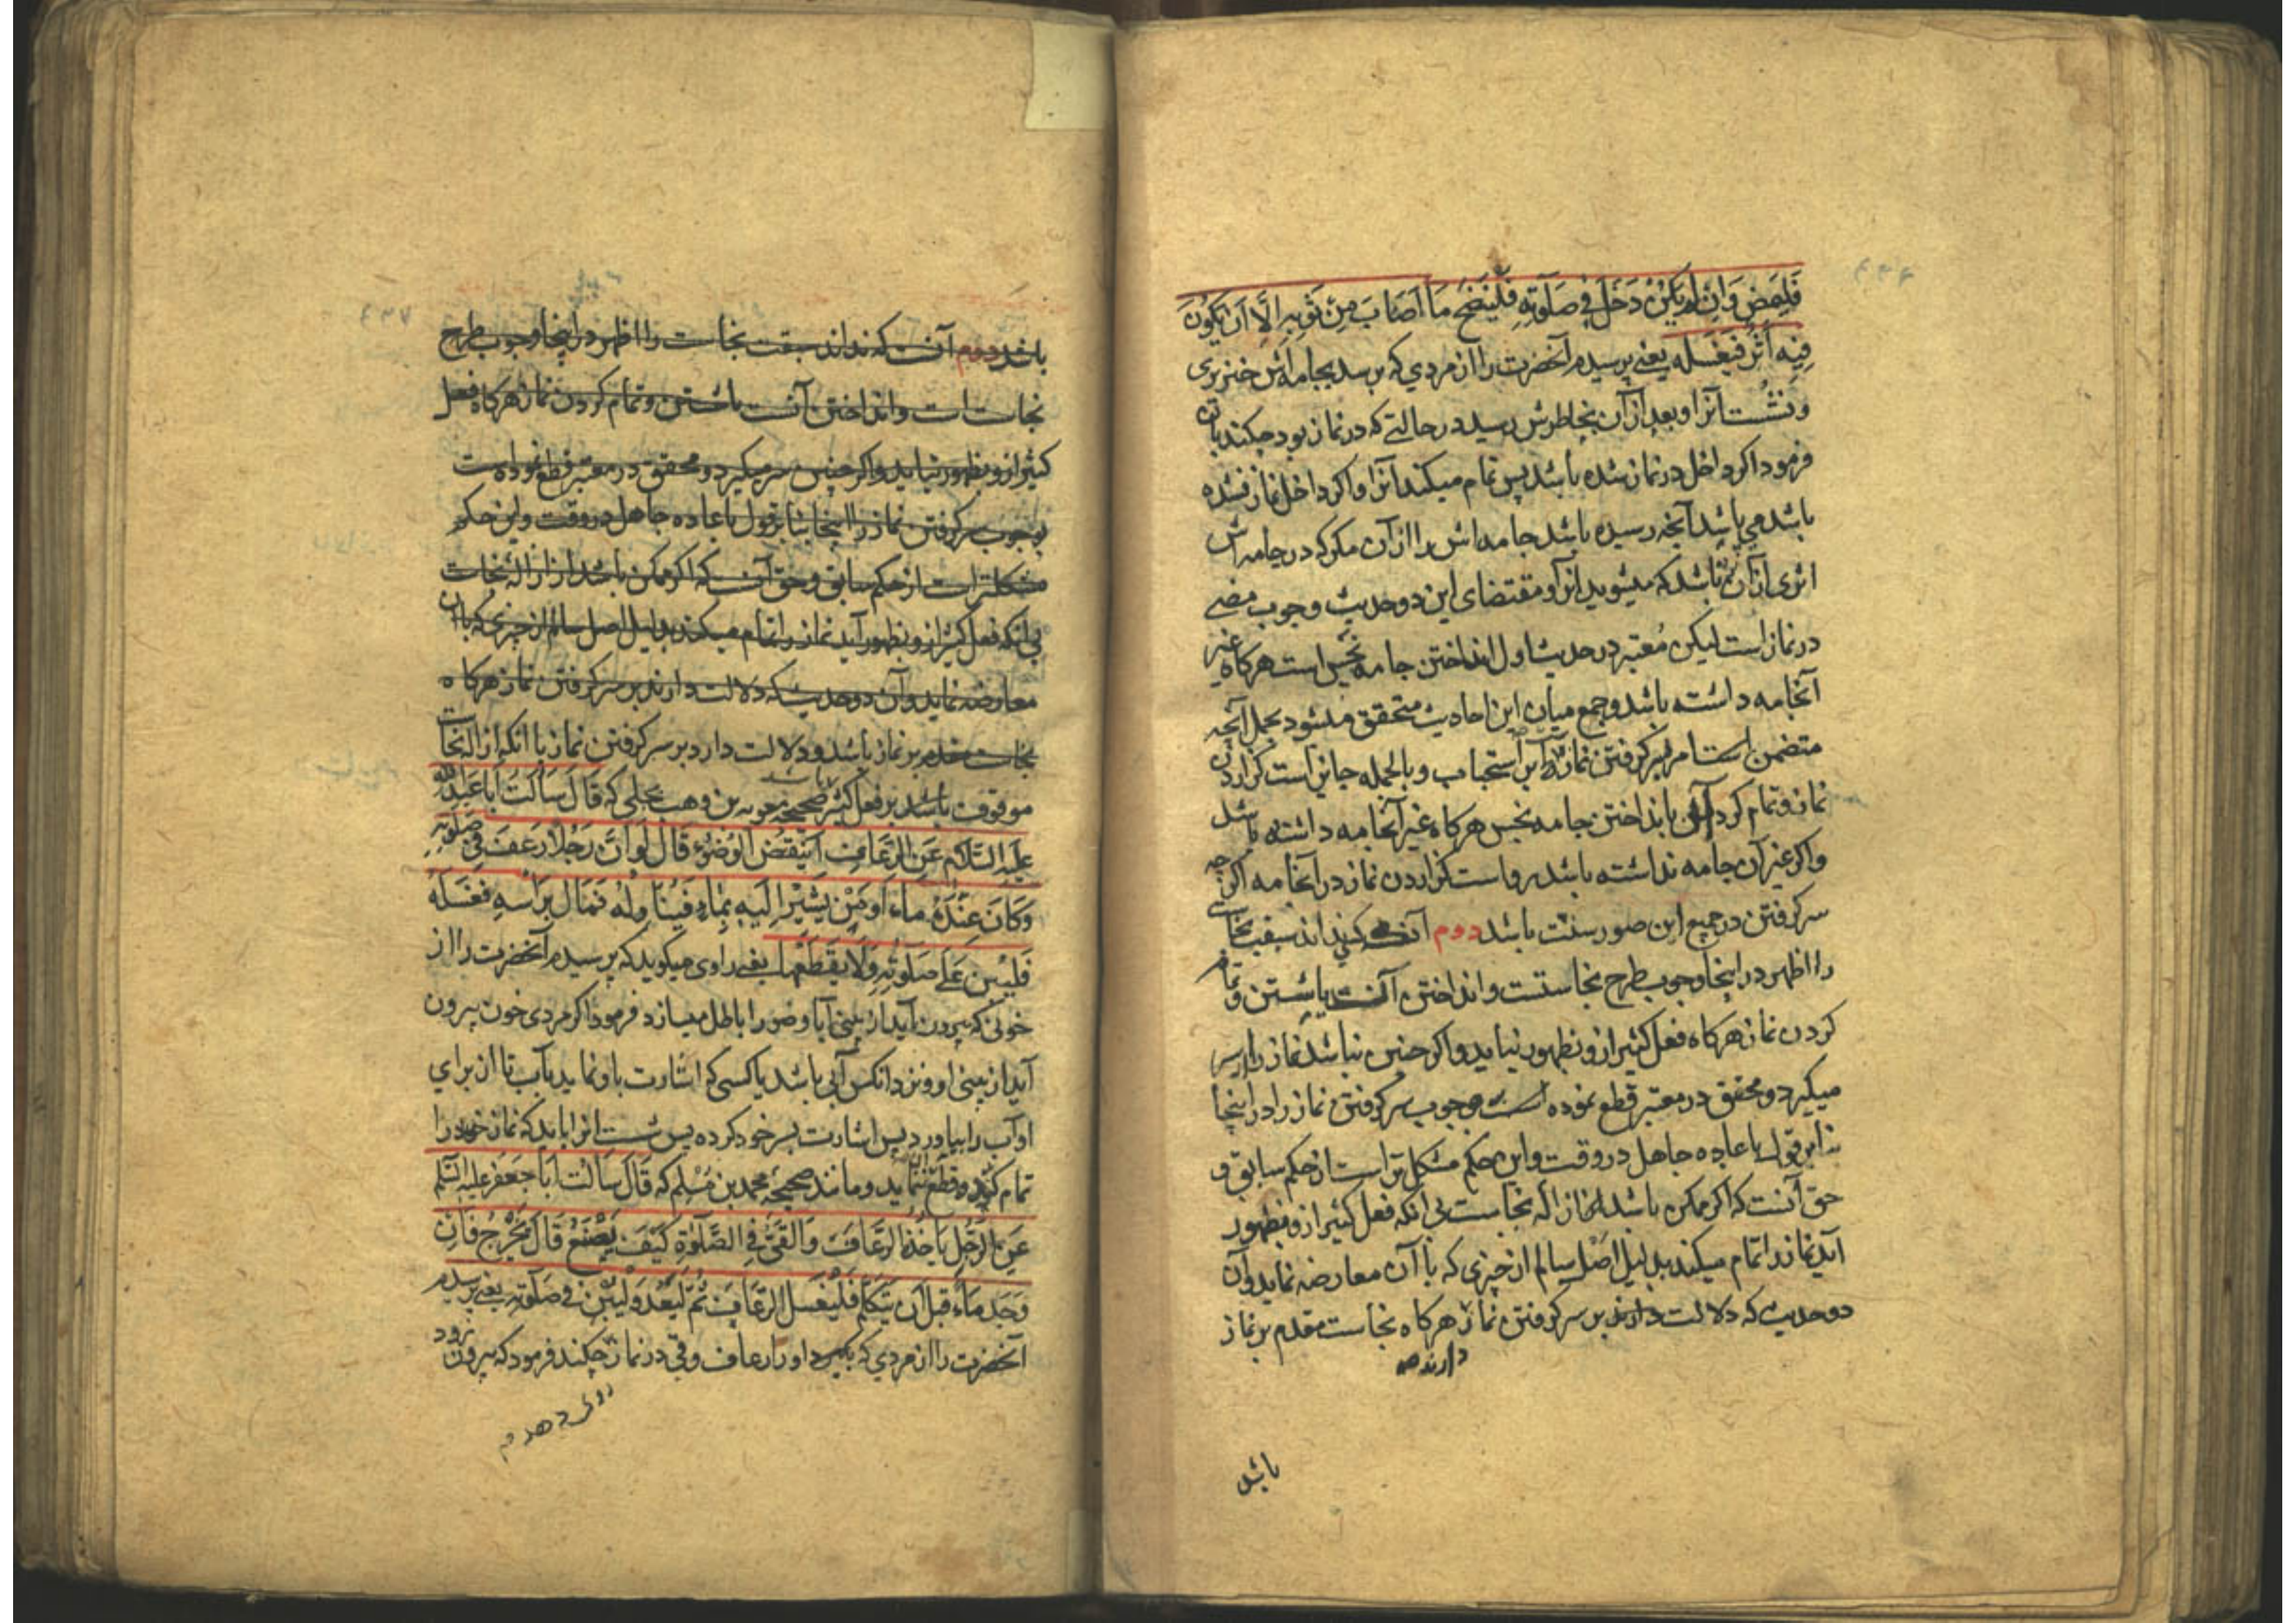 ۴۳۶
فَلْيَمْضِ وَاِنْ لَمْ يَكُنْ دَخَلَ فِي صَلٰوتِهِ فَلْيَنْضَحْ مَا اَصَابَ مِنْ ثَوْبِهِ اِلَّا اَنْ يَكُوُنَ
فِيْهِ اَثَرٌ فَيَغْسِلَه يعنے پرسيدم آنحضرت را از مردي كه برسد بجامه اش خنزيري
و نشست آنرا و بعد از آن بخاطرش رسيد در حالتے كه در نماز بود چكند بان
فرمود اكر داخل در نماز شده باشد پس تمام ميكند آنرا و اكر داخل نماز نشده
باشد مي پاشد آنچه رسيده باشد جامه اش را از آن مكر كه در جامه اش
اثري از آن باشد كه ميشويد انرا و مقتضاى اين دو حديث وجوب مضے
در نماز است ليكن مُعتبر در حديث اول انداختن جامه نجس است هركاه غير
آنجامه داشته باشد و جمع ميان اين احاديث متحقق ميشود بحمل آنچه
متضمن است امر بسر كرفتن نماز را بر استحباب و بالجمله جايز است كزاردن
نماز و تمام كردن آن بانداختن جامه نجس هركاه غير آنجامه داشته باشد
و اكر غير آن جامه نداشته باشد رواست كزاردن نماز در آنجامه اكر چه
سر كرفتن در جميع اين صور سنت باشد دوم آنكه نداند سبقت نجاست
را اظهر در اينجا وجوب طرح نجاستست و انداختن آنست يا شستن و تمام
كردن نماز هركاه فعل كثير ازو بظهور نيايد و اكر چنين نباشد نماز را از سر
ميكيرد و محقق در معتبر قطع نموده است بوجوب سر كرفتن نماز را در اينجا
بنابر قول باعاده جاهل در وقت و اين حكم مشكل تر است از حكم سابق و
حق آنست كه اكر ممكن باشد ازاله نجاست بي انكه فعل كثير ازو بظهور
آيد نماز را تمام ميكند بدليل اصل سالم از چيزي كه با آن معارضه نمايد و آن
دو حديث كه دلالت دارند بر سر كرفتن نماز هركاه نجاست مقدم بر نماز
دارند صح
باشد
۴۳۷
باشد دوم آنست كه نداند سبقت نجاست را اظهر در اينجا وجوب طرح
نجاست است و انداختن آنست يا شستن و تمام كردن نماز هركاه فعل
كثير ازو بظهور نيايد و اكر چنين سر ميكيرد و محقق در معتبر قطع نموده است
بوجوب سر كرفتن نماز را اينجا بنابر قول باعاده جاهل در وقت و اين حكم
مشكلتر است از حكم سابق و حق آنست كه اكر ممكن باشد ازاله نجاست
بي انكه فعل كثير ازو بظهور آيد نماز را تمام ميكند بدليل اصل سالم از چيزي كه با آن
معارضه نمايد و آن دو حديث كه دلالت دارند بر سر كرفتن نماز هركاه
نجاست مقدم بر نماز باشد و دلالت دارد بر سر كرفتن نماز با انكه ازاله نجاست
موقوف باشد بر فعل كثير صحيحه معويه بن وهب بجلي كه قَالَ سَاَلْتُ اَبَا عَبْدِ اللّٰه
عليه السَّلام عَنِ الرُّعَافِ اَيَنْقُضُ الْوُضُوُءَ قَالَ لَوْ اَنَّ رَجُلًا رَعَفَ فِي صَلٰوتِهِ
وَكَانَ عِنْدَهُ مَاءٌ اَوْ مَنْ يُشِيْرُ اِلَيْهِ بِمَاءٍ فَيُنَاوِلُهُ فَمَالَ بِرَاْسِهِ فَغَسَلَهُ
فَلْيَبْنِ عَلٰے صَلٰوتِهِ وَلَا يَقْطَعْهَا يعنے راوى ميكويد كه پرسيدم آنحضرت را از
خوني كه بيرون آيد از بيني آيا وضو را باطل ميسازد فرمود اكر مردى خون بيرون
آيد از بيني او و نزد انكس آبي باشد يا كسى كه اشارت باو نمايد بآب تا ان براي
او آب را بياورد پس اشارت بسر خود كرده پس شست انرا بايد كه نماز خود را
تمام كند و قطع ننمايد و مانند صحيحه محمد بن مسلم كه قَالَ سَاَلْتُ اَبَا جَعْفَرٍ عليه السّلم
عَنِ الرَّجُلِ يَاْخُذُهُ الرُّعَافُ وَالْقَيْءُ فِي الصَّلٰوةِ كَيْفَ يَصْنَعُ قَالَ يَخْرُجُ فَاِنْ
وَجَدَ مَاءً قَبْلَ اَنْ يَتَكَلَّمَ فَلْيَغْسِلِ الرُّعَافَ ثُمَّ لْيَعُدْ وَلْيَبْنِ فِي صَلٰوتِهِ يعنے پرسيدم
آنحضرت را از مردي كه بكيرد او را رعاف و قي در نماز چكند فرمود كه بيرون رود